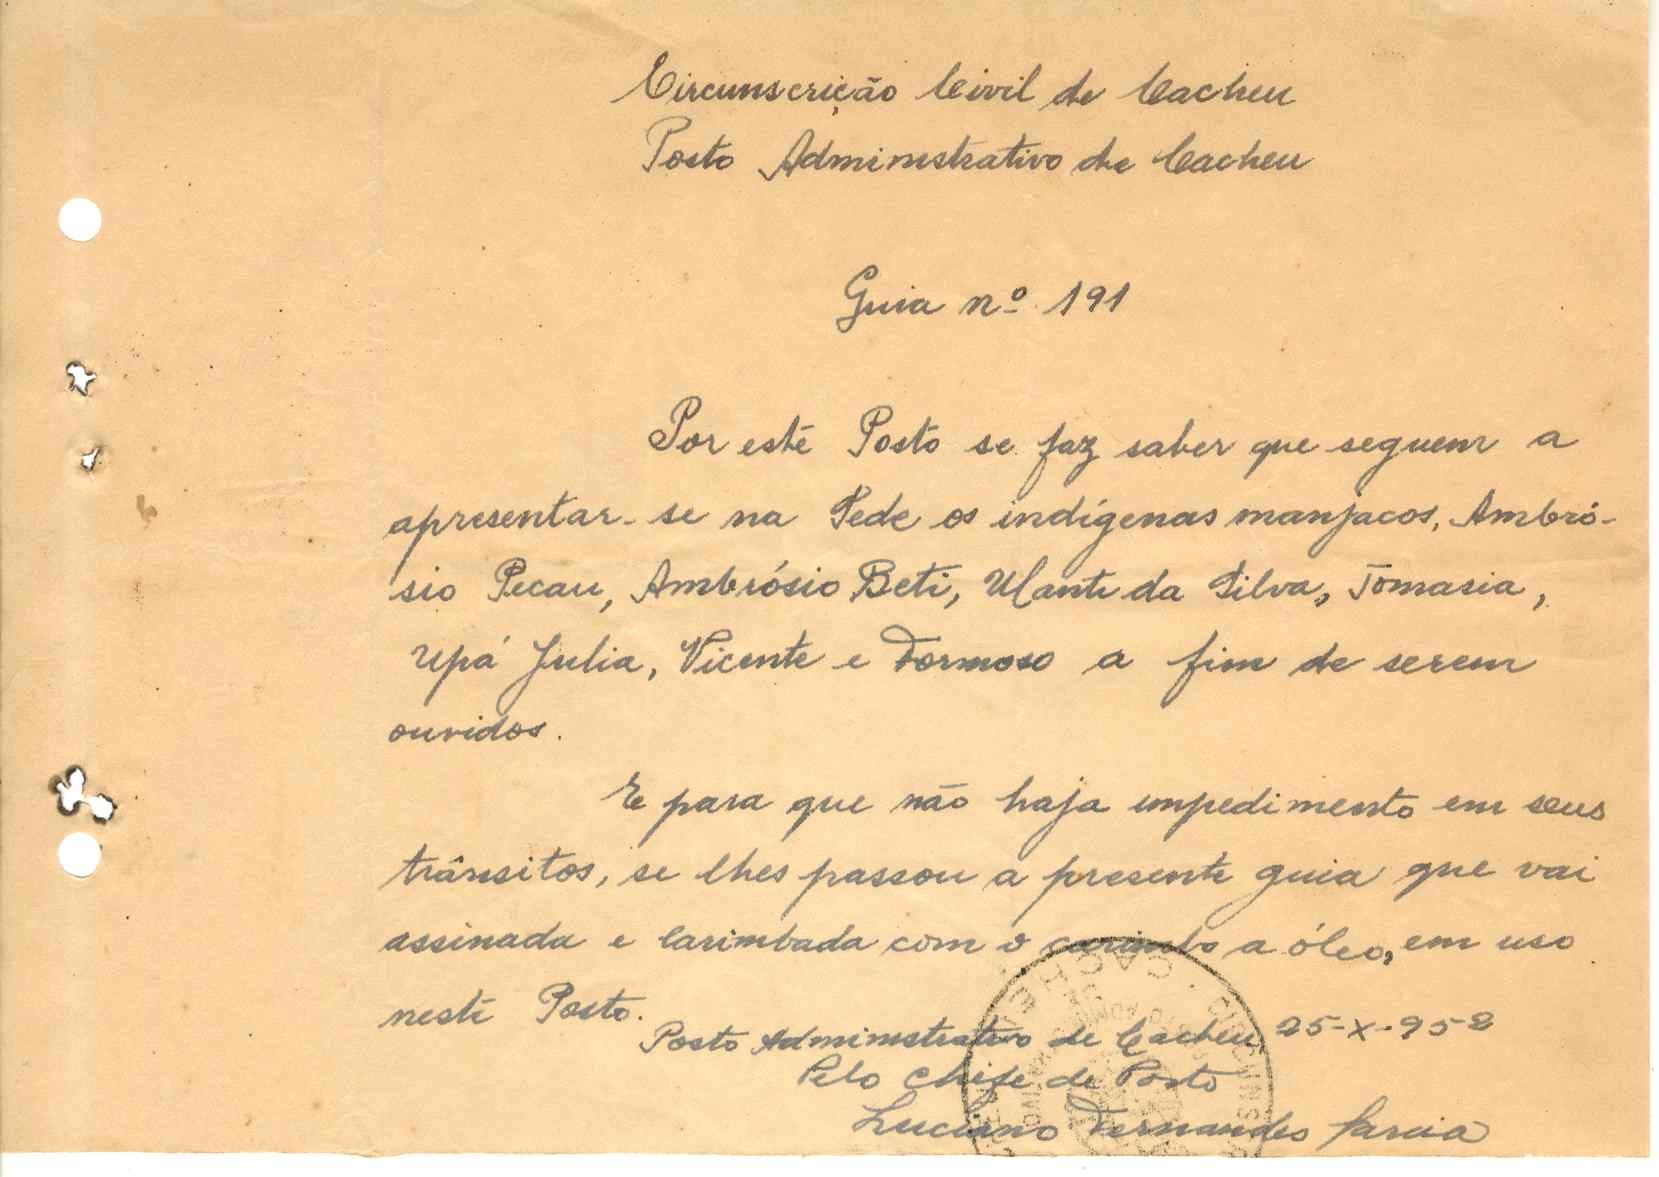 Circunscrição Civil de Cacheu
Posto Administrativo de Cacheu
Guia nº 191
Por este Posto se faz saber que seguem a
apresentar-se na Sede os indígenas manjacos, Ambró-
sio Pecau, Ambrósio Beti, Ulante da Silva, Tomasia,
Upá Julia, Vicente e Formoso a fim de serem
ouvidos.
E para que não haja impedimento em seus
trânsitos, se lhes passou a presente guia que vai
assinada e carimbada com o carimbo a óleo, em uso
neste Posto.
Posto Administrativo de Cacheu, 25-X-952
Pelo Chefe de Posto
Luciano Fernandes Garcia
CACHEU